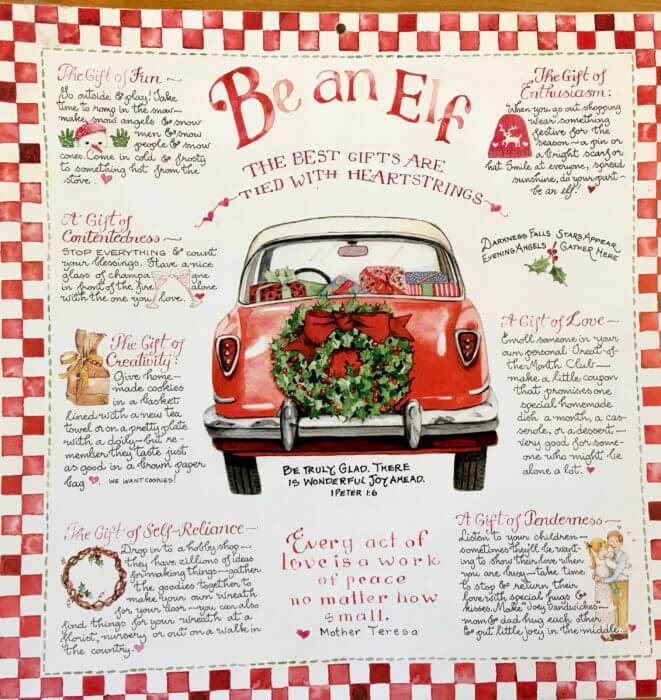 Be an Elf
THE BEST GIFTS ARE
TIED WITH HEARTSTRINGS
The Gift of Fun
Go outside & play! Take
time to romp in the snow—
make snow angels & snow
men & snow
people & snow
cones. Come in cold & frosty
to something hot from the
stove.
A Gift of
Contentedness
STOP EVERYTHING & count
your blessings. Have a nice
glass of champagne
in front of the fire alone
with the one you love.
The Gift of
Creativity:
Give home-
made cookies
in a basket
lined with a new tea
towel or on a pretty plate
with a doily—but re-
member they taste just
as good in a brown paper
bag WE WANT COOKIES!
The Gift of Self-Reliance
Drop in to a hobby shop—
they have zillions of ideas
for making things—gather
the goodies together to
make your own wreath
for your door—you can also
find things for your wreath at a
florist, nursery or out on a walk in
the country.
The Gift of
Enthusiasm:
When you go out shopping
wear something
festive for the
season—a pin or
a bright scarf or
hat. Smile at everyone, spread
sunshine, do your part—
be an elf!
DARKNESS FALLS STARS APPEAR
EVENING ANGELS GATHER HERE
A Gift of Love
Enroll someone in your
own personal Treat-of-
the-Month Club—
make a little coupon
that promises one
special homemade
dish a month, a cas-
serole, or a dessert,—
very good for some-
one who might be
alone a lot.
A Gift of Tenderness
Listen to your children—
sometimes they'll be want-
ing to show their love when
you are busy—take time
to stop & return their
love with special hugs &
kisses. Make Joey Sandwiches—
mom & dad hug each other
& put little Joey in the middle.
BE TRULY GLAD. THERE
IS WONDERFUL JOY AHEAD.
1 PETER 1:6
Every act of
love is a work
of peace
no matter how
small.
Mother Teresa